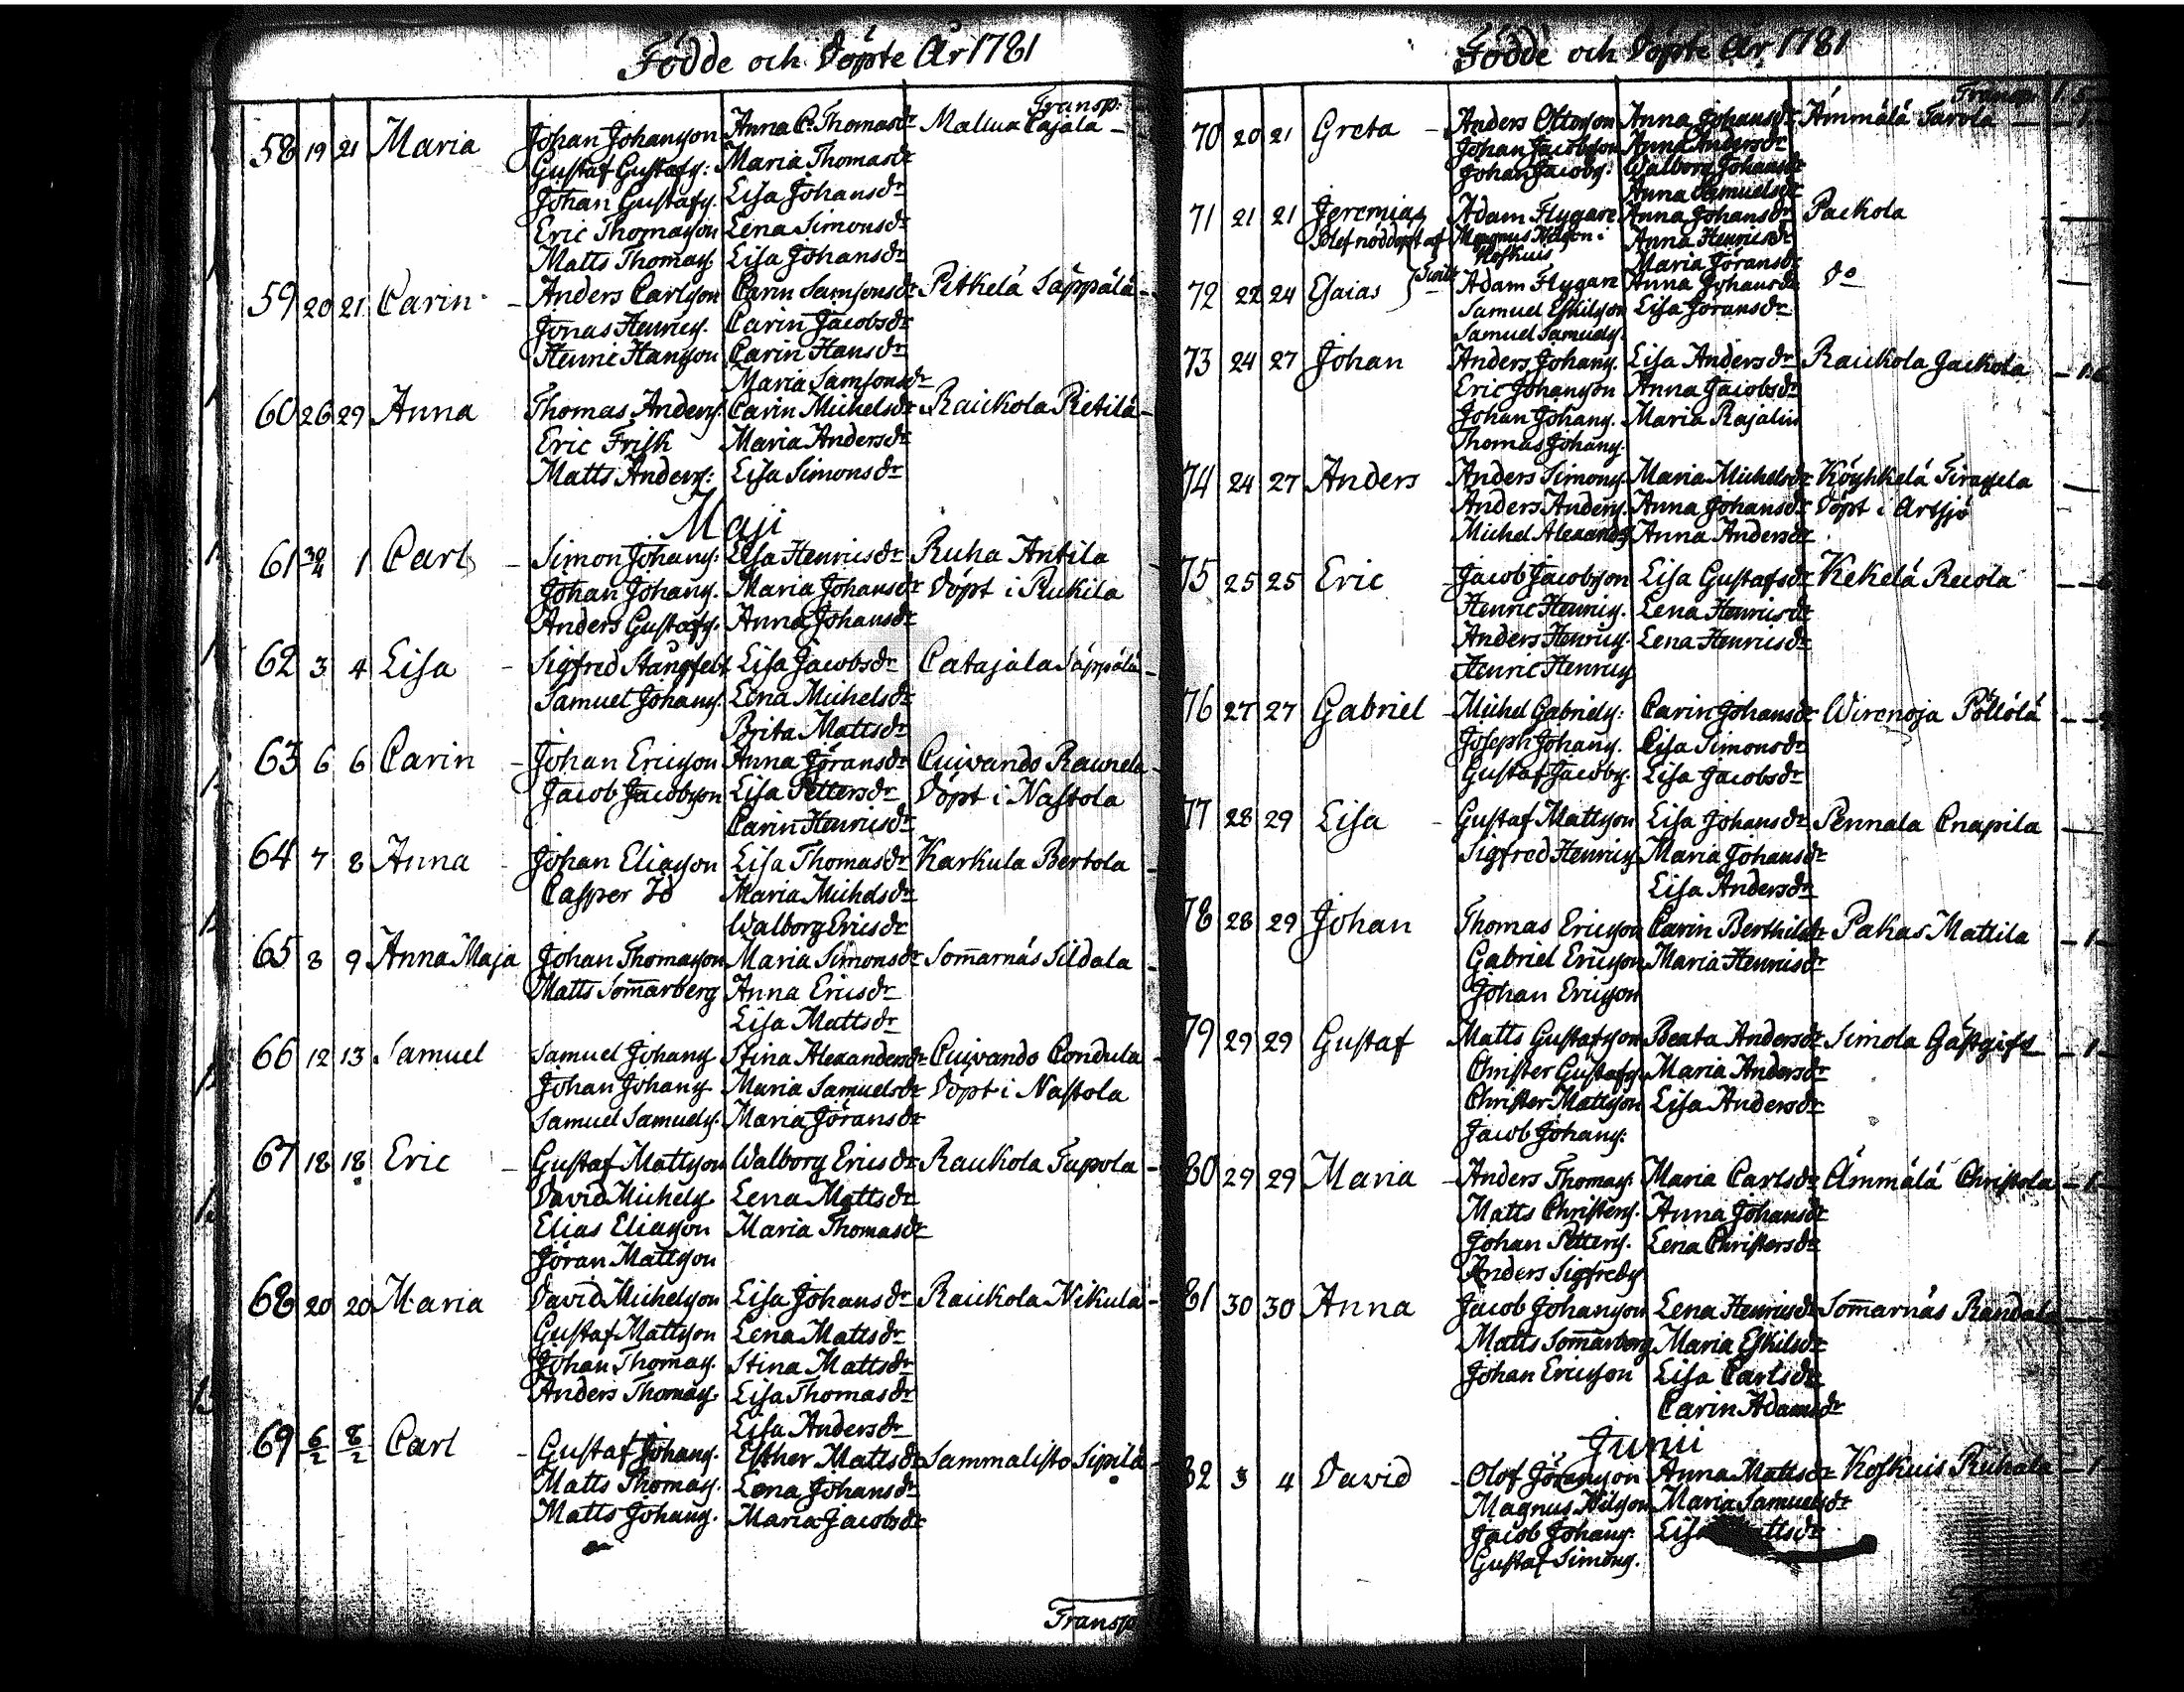 Födde och Döpte År 1781
Transp:
58 19 21 Maria Johan Johansson Anna C. Thomasdr Mallua Cajala
Gustaf Gustafs: Maria Thomasdr
Johan Gustafs. Lisa Johansdr
Eric Thomasson Lena Simonsdr
Matts Thomass. Lisa Johansdr
59 20 21 Carin Anders Carlsson Carin Samsonsdr Pitkelä Säppälä
Jonas Henrics. Carin Jacobsdr
Henric Hansson Carin Hansdr
Maria Samsonsdr
60 26 29 Anna Thomas Anders. Carin Michelsdr Raickola Pietilä
Eric Frisk Maria Andersdr
Matts Anders: Lisa Simonsdr
Maji
61 30/4 1 Carl Simon Johans: Lisa Henricsdr Ruha Antila
Johan Johans. Maria Johansdr Döpt i Pukila
Anders Gustafs. Anna Johansdr
62 3 4 Lisa Sigfred Stångfelt Lisa Jacobsdr Catajala Säppälä
Samuel Johans. Lena Michelsdr
Brita Mattsdr
63 6 6 Carin Johan Ericsson Anna Jöransdr Cuivando Raunela
Jacob Jacobsson Lisa Pettersdr Döpt i Nastola
Carin Henricsdr
64 7 8 Anna Johan Eliasson Lisa Thomasdr Karkula Bertola
Casper Id Maria Michelsdr
Walborg Ericsdr
65 8 9 Anna Maja Johan Thomasson Maria Simonsdr Som̄arnäs Sildala
Matts Som̄arberg Anna Ericsdr
Lisa Mattsdr
66 12 13 Samuel Samuel Johans Stina Alexandersdr Cuivando Condula
Johan Johans Maria Samuelsdr Döpt i Nastola
Samuel Samuels. Maria Jöransdr
67 18 18 Eric Gustaf Mattsson Walborg Ericsdr Raukola Tupola
David Michels Lena Mattsdr
Elias Eliasson Maria Thomasdr
Jöran Mattsson
68 20 20 Maria David Michelson Lisa Johansdr Raickola Nikula
Gustaf Mattsson Lena Mattsdr
Johan Thomas. Stina Mattsdr
Anders Thomas. Lisa Thomasdr
Lisa Andersdr
69 6/2 8/2 Carl Gustaf Johans. Esther Mattsdr Sammalisto Sipilä
Matts Thomas. Lena Johansdr
Matts Johans. Maria Jacobsdr
Transp
Födde och Döpte År 1781
Transp
70 20 21 Greta Anders Ottosson Anna Johansdr Ämmälä Tarola
Johan Jacobsson Anna Andersdr
Johan Jacobs: Walborg Johansdr
Anna Samuelsdr
71 21 21 Jeremias Adam Flygare Anna Johansdr Packola
Blef nöddöpt af Magnus Nilson i Anna Henricsdr
Kofkuis Maria Jöransdr
72 22 24 Esaias Adam Flygare Anna Johansdr Do
Samuel Eskilson Lisa Jöransdr
Samuel Samuels
73 24 27 Johan Anders Johans. Lisa Andersdr Raukola Jackola
Eric Johansson Anna Jacobsdr
Johan Johans. Maria Rajalin
Thomas Johans.
74 24 27 Anders Anders Simons. Maria Michelsdr Köyhkelä
Anders Anders. Anna Johansdr Döpt i Artsjö
Michel Alexands Anna Andersdr
75 25 25 Eric Jacob Jacobsson Lisa Gustafsdr Kekelä Recola
Henric Henrics. Lena Henricsdr
Anders Henrics. Lena Henricsdr
Henric Henrics
76 27 27 Gabriel Michel Gabriels: Carin Johansdr Wirenoja Pöllölä
Joseph Johans. Lisa Simonsdr
Gustaf Jacobs. Lisa Jacobsdr
77 28 29 Lisa Gustaf Mattsson Lisa Johansdr Pennala Cnapila
Sigfred Henrics Maria Johansdr
Lisa Andersdr
78 28 29 Johan Thomas Ericsson Carin Berthilsdr Pakas Mattila
Gabriel Ericsson Maria Henricsdr
Johan Ericsson
79 29 29 Gustaf Matts Gustafsson Beata Andersdr Simola Gästgifs
Christer Gustafs Maria Andersdr
Christer Mattsson Lisa Andersdr
Jacob Johans:
80 29 29 Maria Anders Thomas: Maria Carlsdr Ämmälä Christola
Matts Christers. Anna Johansdr
Johan Petters. Lena Christersdr
Anders Sigfreds
81 30 30 Anna Jacob Johansson Lena Henricsdr Som̄arnäs Randala
Matts Som̄arberg Maria Eskilsdr
Johan Ericsson Lisa Carlsdr
Carin Adamsdr
Junii
82 3 4 David Olof Jöransson Anna Mattsdr Koskuis Ruhala
Magnus Nilsson Maria Samuelsdr
Jacob Johans: Lisa Mattsdr
Gustaf Simons.